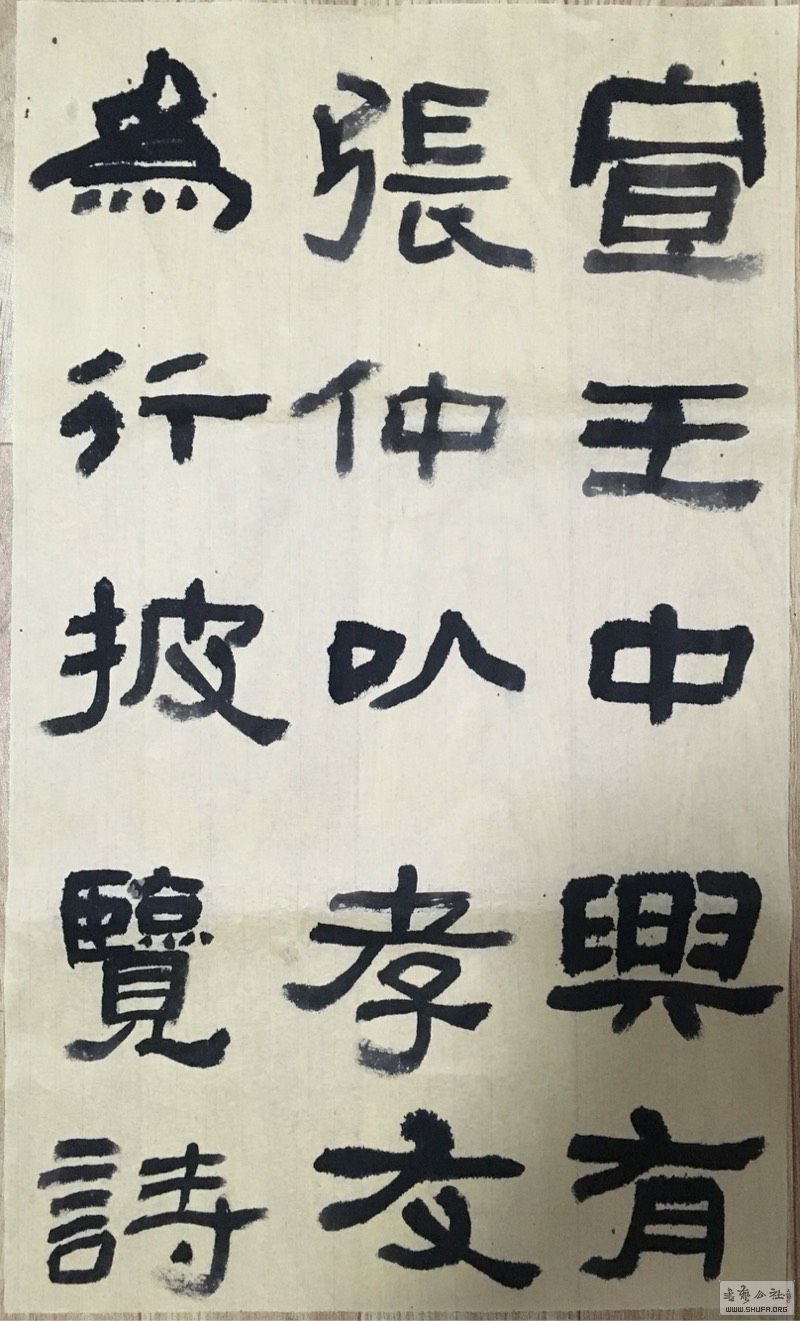 宣王中興有
張仲以孝友
為行披覽詩
書藝公社
WWW.SHUFA.ORG